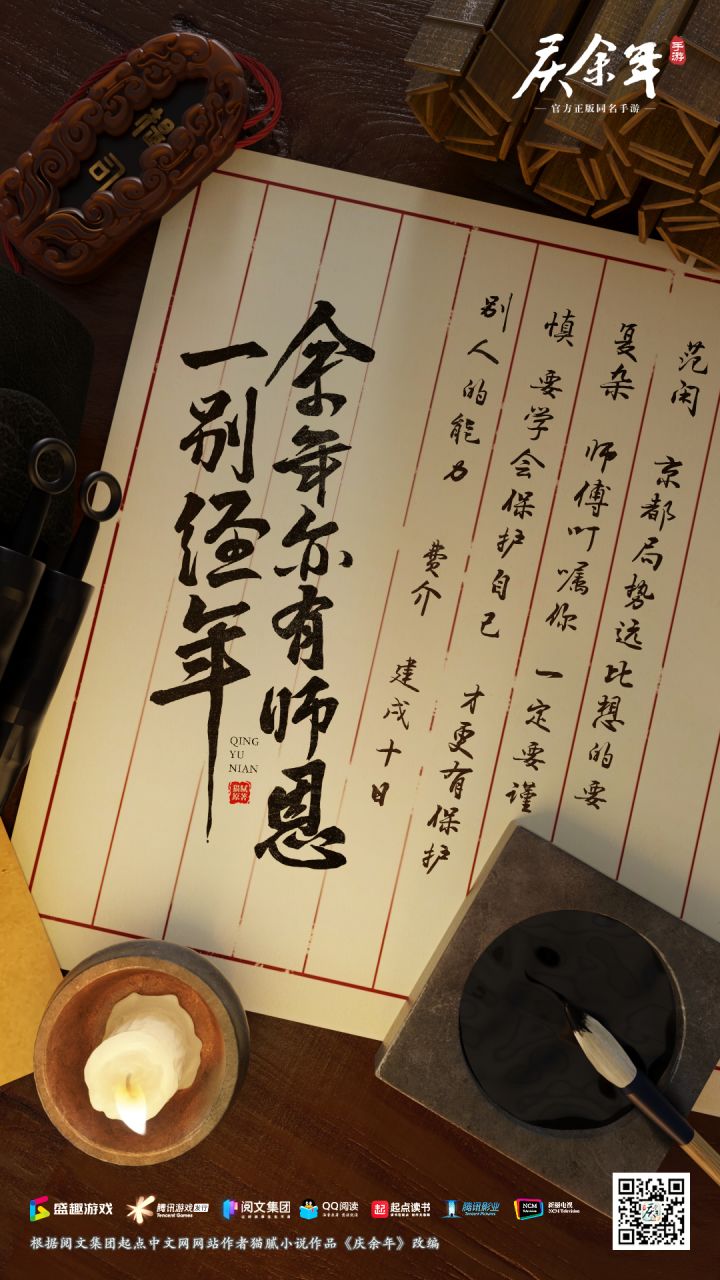 庆余年
手游
官方正版同名手游
范闲 京都局势远比想的要
复杂 师傅叮嘱你 一定要谨
慎 要学会保护自己 才更有保护
别人的能力
费介 建戌十日
余年亦有师恩
一别经年
QING
YU
NIAN
猫腻
原著
盛趣游戏
腾讯游戏 发行
Tencent Games
阅文集团
QQ阅读
起点读书
腾讯影业
Tencent Pictures
NCM
新丽电视
NCM Television
根据阅文集团起点中文网网站作者猫腻小说作品《庆余年》改编